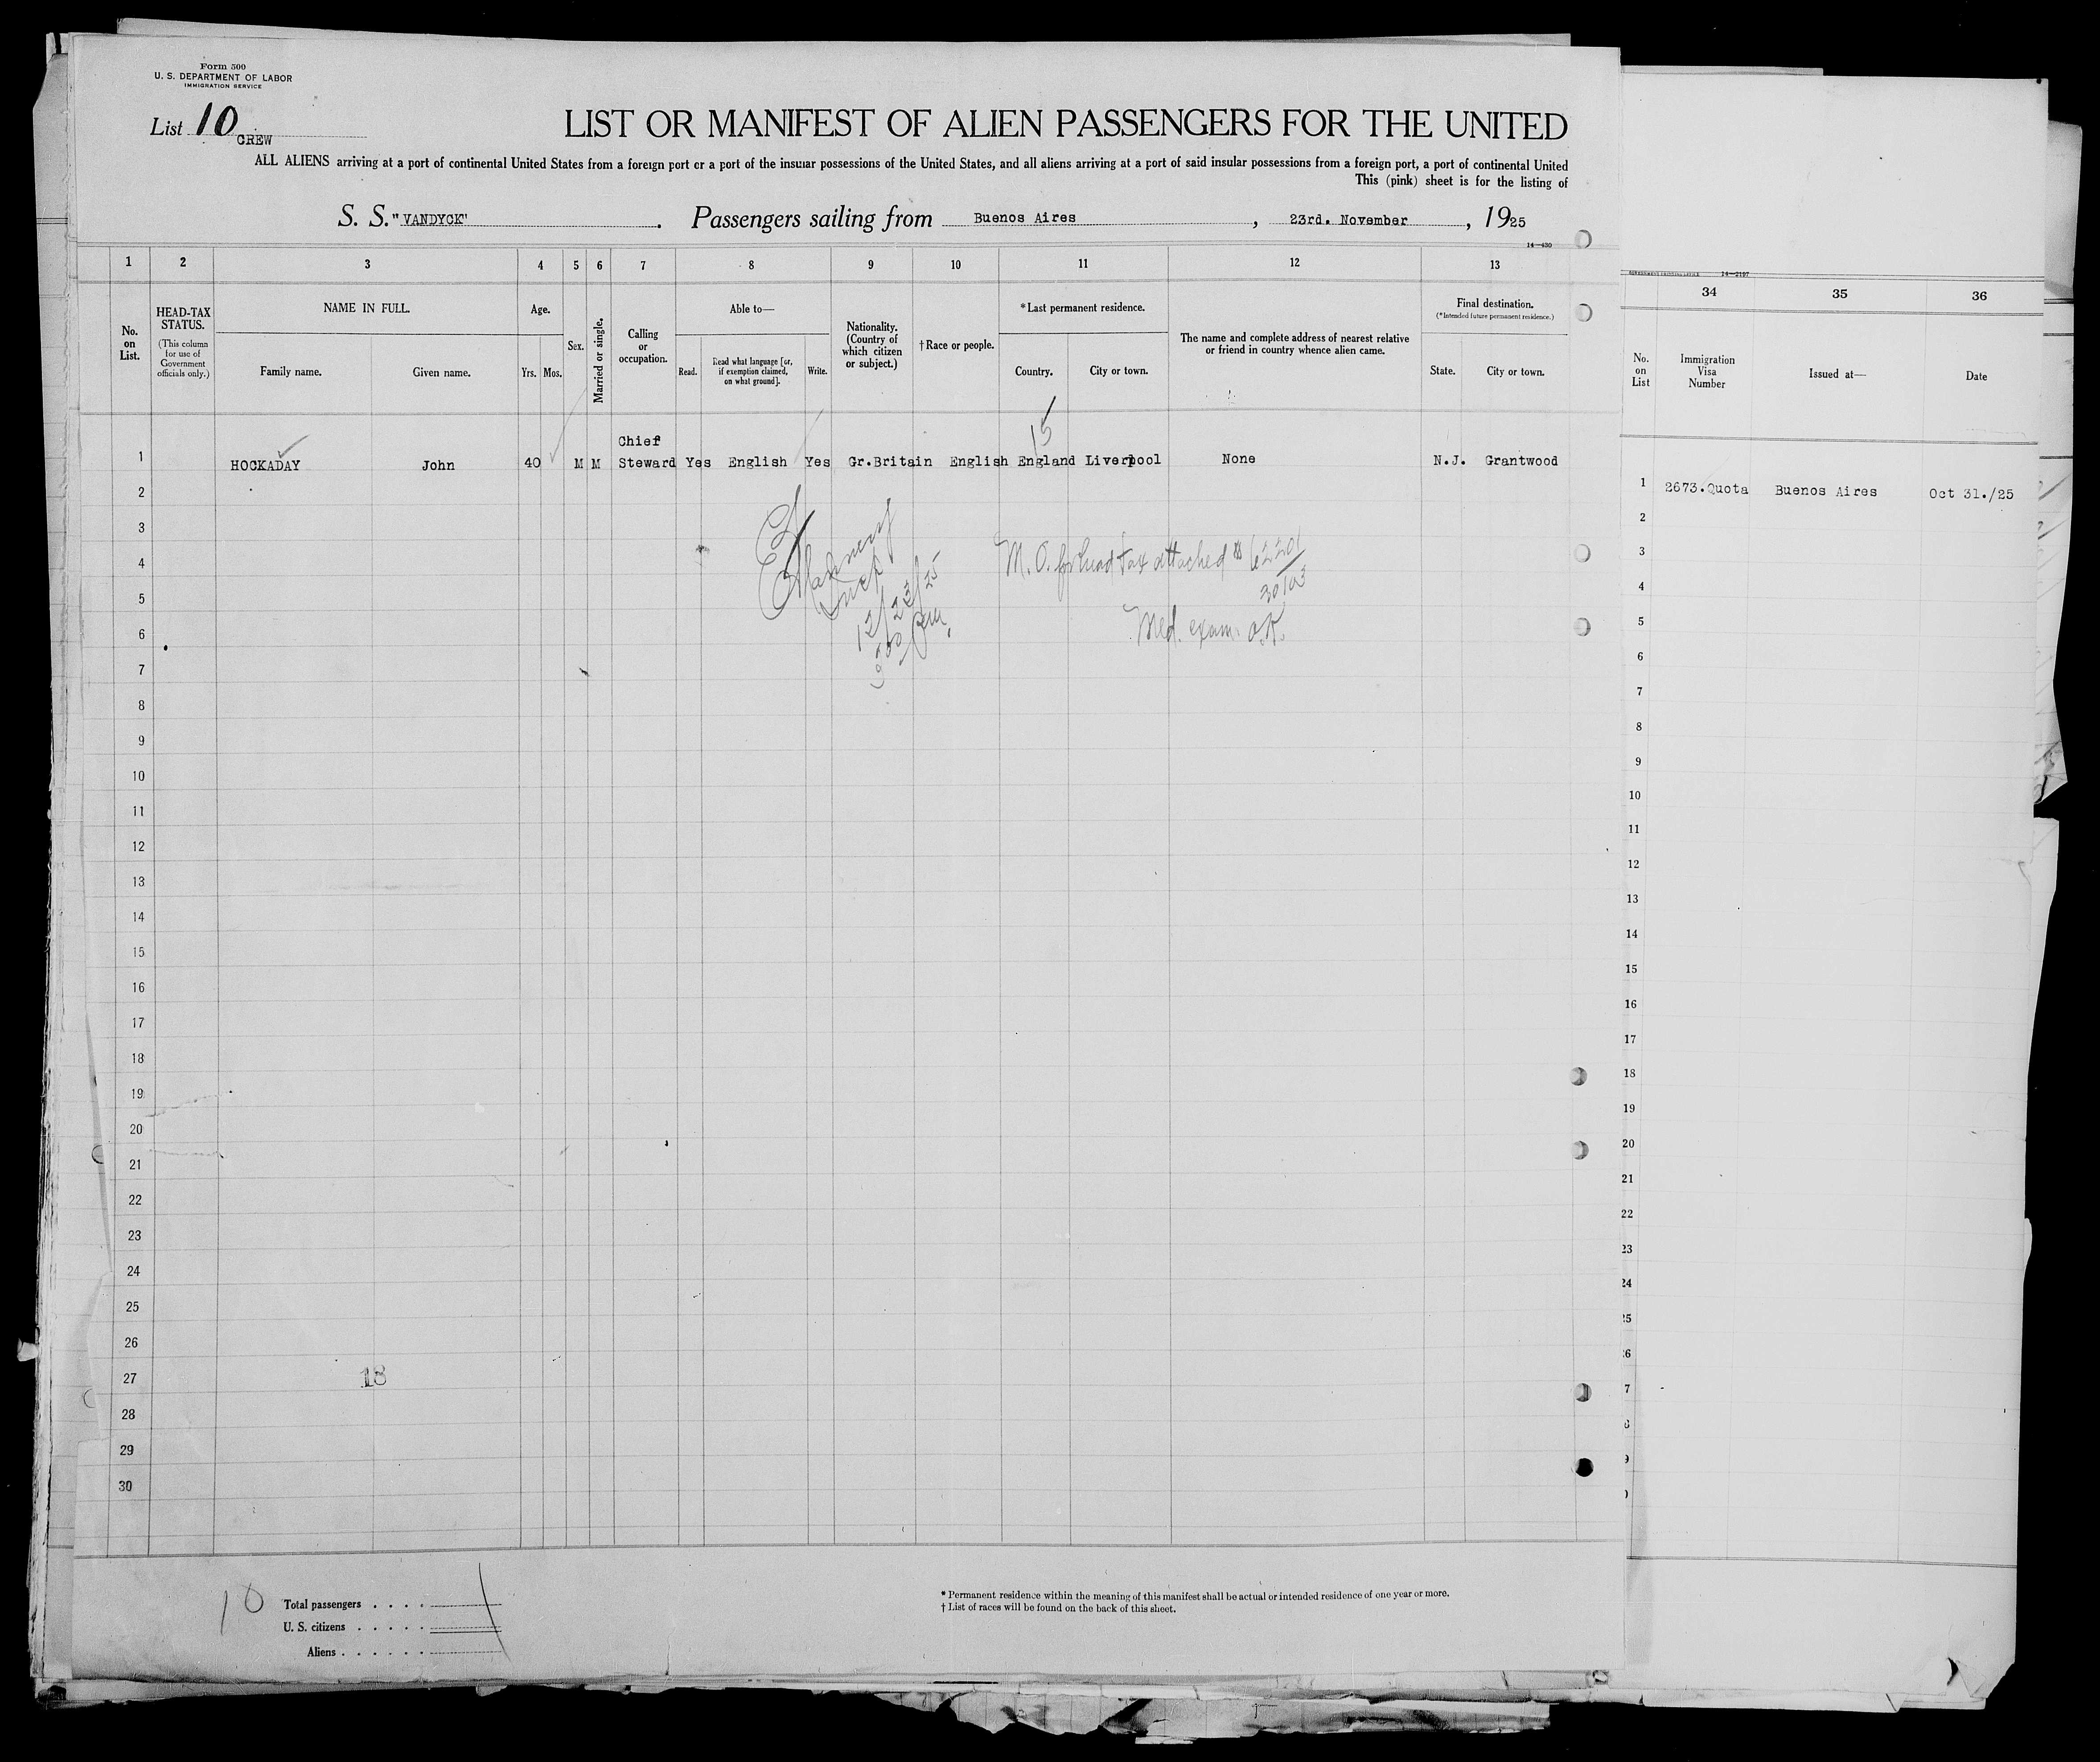 Form 500
U. S. DEPARTMENT OF LABOR
IMMIGRATION SERVICE
List 10
CREW
LIST OR MANIFEST OF ALIEN PASSENGERS FOR THE UNITED
ALL ALIENS arriving at a port of continental United States from a foreign port or a port of the insular possessions of the United States, and all aliens arriving at a port of said insular possessions from a foreign port, a port of continental United
This (pink) sheet is for the listing of
S. S. "VANDYCK". Passengers sailing from Buenos Aires, 23rd. November, 1925
14—430
1 2 3 4 5 6 7 8 9 10 11 12 13
No. on List.
HEAD-TAX STATUS.
(This column for use of Government officials only.)
NAME IN FULL.
Family name. Given name.
Age.
Yrs. Mos.
Sex.
Married or single.
Calling or occupation.
Able to—
Read. Read what language [or, if exemption claimed, on what ground]. Write.
Nationality. (Country of which citizen or subject.)
†Race or people.
*Last permanent residence.
Country. City or town.
The name and complete address of nearest relative or friend in country whence alien came.
Final destination.
(*Intended future permanent residence.)
State. City or town.
15
1 HOCKADAY John 40 M M Chief Steward Yes English Yes Gr.Britain English England Liverpool None N.J. Grantwood
2
3
M. O. for head tax attached
4
5
Med. exam. O.K.
6
12/23/25
7
8
9
10
11
12
13
14
15
16
17
18
19
20
21
22
23
24
25
26
27
18
28
29
30
10
Total passengers
U. S. citizens
Aliens
* Permanent residence within the meaning of this manifest shall be actual or intended residence of one year or more.
† List of races will be found on the back of this sheet.
14—2197
34 35 36
No. on List
Immigration Visa Number
Issued at—
Date
1 2673.Quota Buenos Aires Oct 31./25
2
3
4
5
6
7
8
9
10
11
12
13
14
15
16
17
18
19
20
21
22
23
24
25
26
7